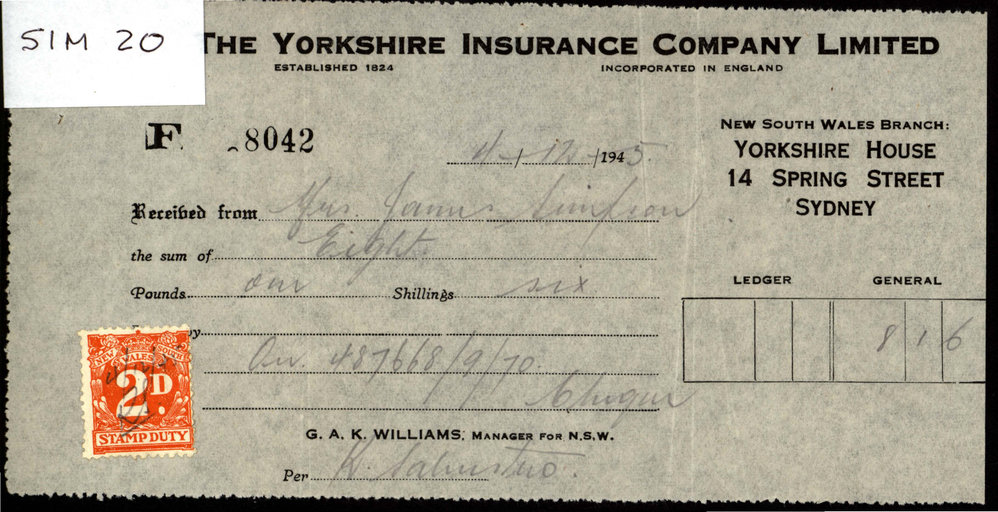 SIM 20
THE YORKSHIRE INSURANCE COMPANY LIMITED
ESTABLISHED 1824 INCORPORATED IN ENGLAND
F 8042
4/12/1945
NEW SOUTH WALES BRANCH:
YORKSHIRE HOUSE
14 SPRING STREET
SYDNEY
Received from Mrs. James Simpson
the sum of Eight
Pounds one Shillings six
LEDGER GENERAL
8 1 6
487668/9/70
Cheque
NEW SOUTH
WALES
2D.
STAMP DUTY
G. A. K. WILLIAMS, MANAGER FOR N.S.W.
Per K.